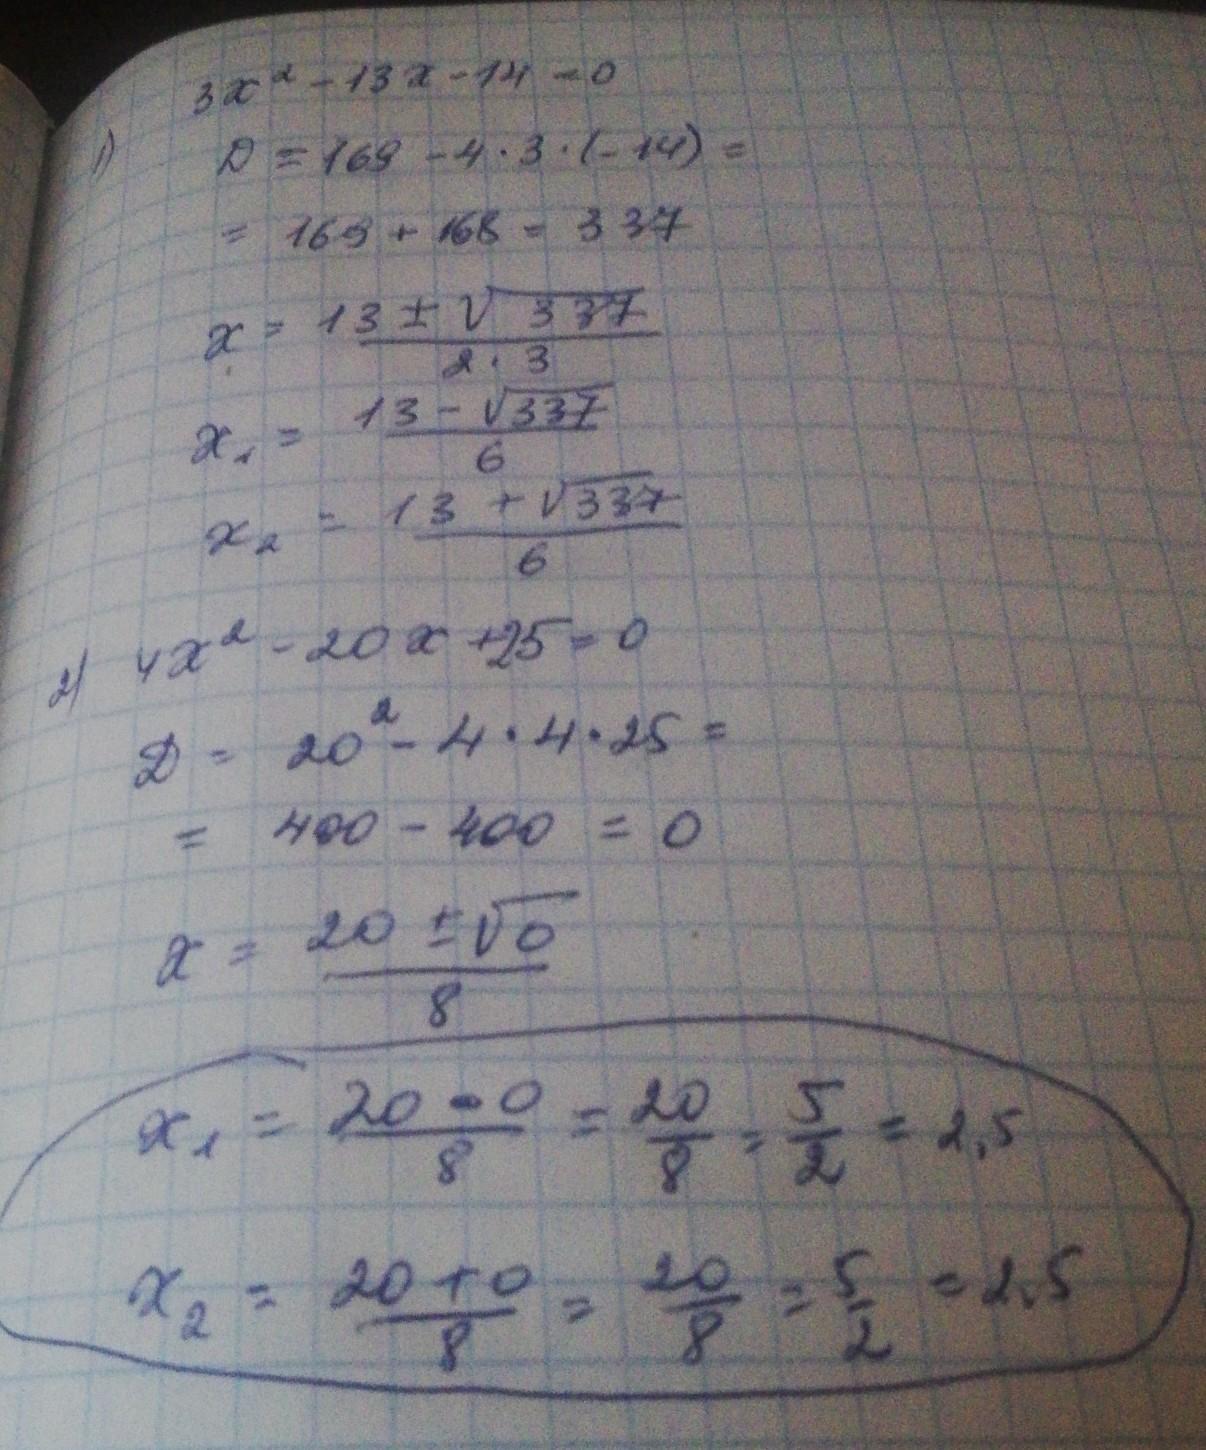 3x² - 13x - 14 = 0
1) D = 169 - 4 · 3 · (-14) =
= 169 + 168 = 337
x = (13 ± √337) / (2 · 3)
x₁ = (13 - √337) / 6
x₂ = (13 + √337) / 6
2) 4x² - 20x + 25 = 0
D = 20² - 4 · 4 · 25 =
= 400 - 400 = 0
x = (20 ± √0) / 8
x₁ = (20 - 0) / 8 = 20/8 = 5/2 = 2,5
x₂ = (20 + 0) / 8 = 20/8 = 5/2 = 2,5